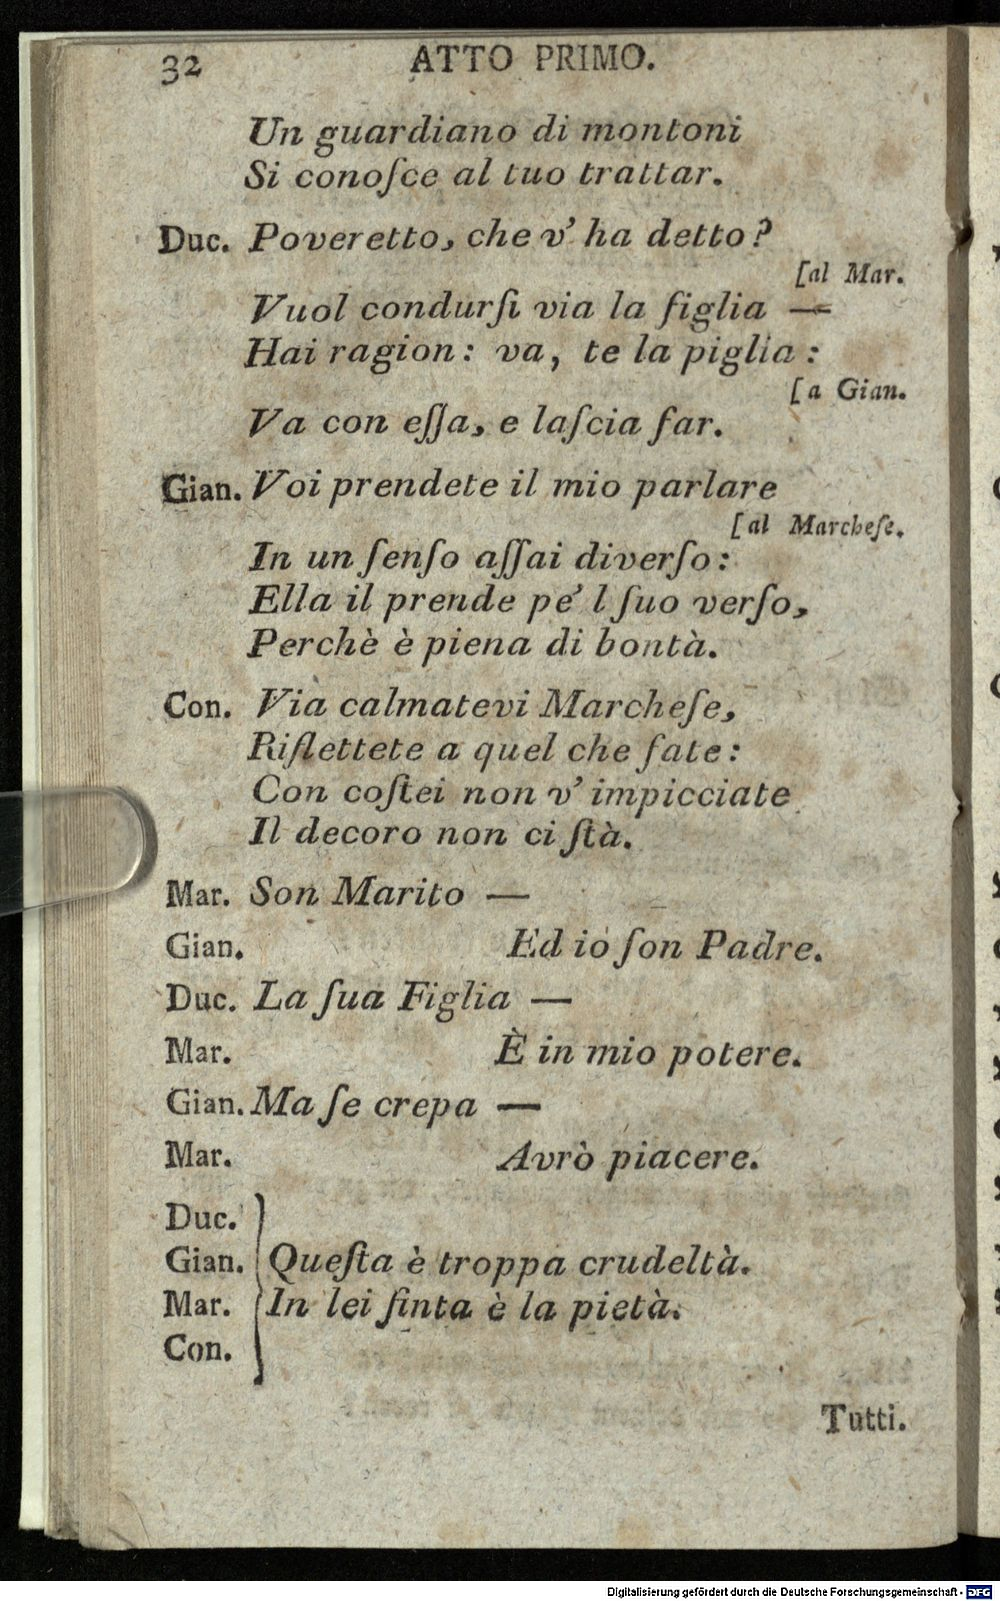 32 ATTO PRIMO.
Un guardiano di montoni
Si conoſce al tuo trattar.
Duc. Poveretto, che v' ha detto?
[al Mar.
Vuol condurſi via la figlia —
Hai ragion: va, te la piglia:
[a Gian.
Va con eſſa, e laſcia far.
Gian. Voi prendete il mio parlare
[al Marcheſe.
In un ſenſo aſſai diverſo:
Ella il prende pe' l ſuo verſo,
Perchè è piena di bontà.
Con. Via calmatevi Marcheſe,
Riflettete a quel che fate:
Con coſtei non v' impicciate
Il decoro non ci ſtà.
Mar. Son Marito —
Gian. Ed io ſon Padre.
Duc. La ſua Figlia —
Mar. È in mio potere.
Gian. Ma ſe crepa —
Mar. Avrò piacere.
Duc.
Gian. Queſta è troppa crudeltà.
Mar. In lei finta è la pietà.
Con.
Tutti.
Digitalisierung gefördert durch die Deutsche Forschungsgemeinschaft - DFG